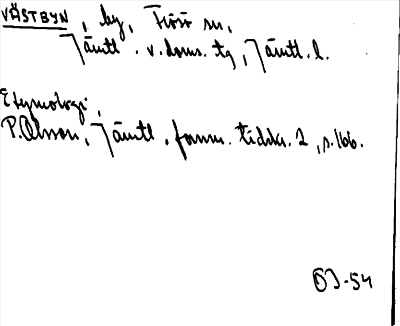 VÄSTBYN, by, Frösö sn,
Jämtl. v. doms. tg, Jämtl. l.
Etymologi,
P. Olsson, Jämtl. fornm. tidskr. 2, s. 166.
ÖJ-54